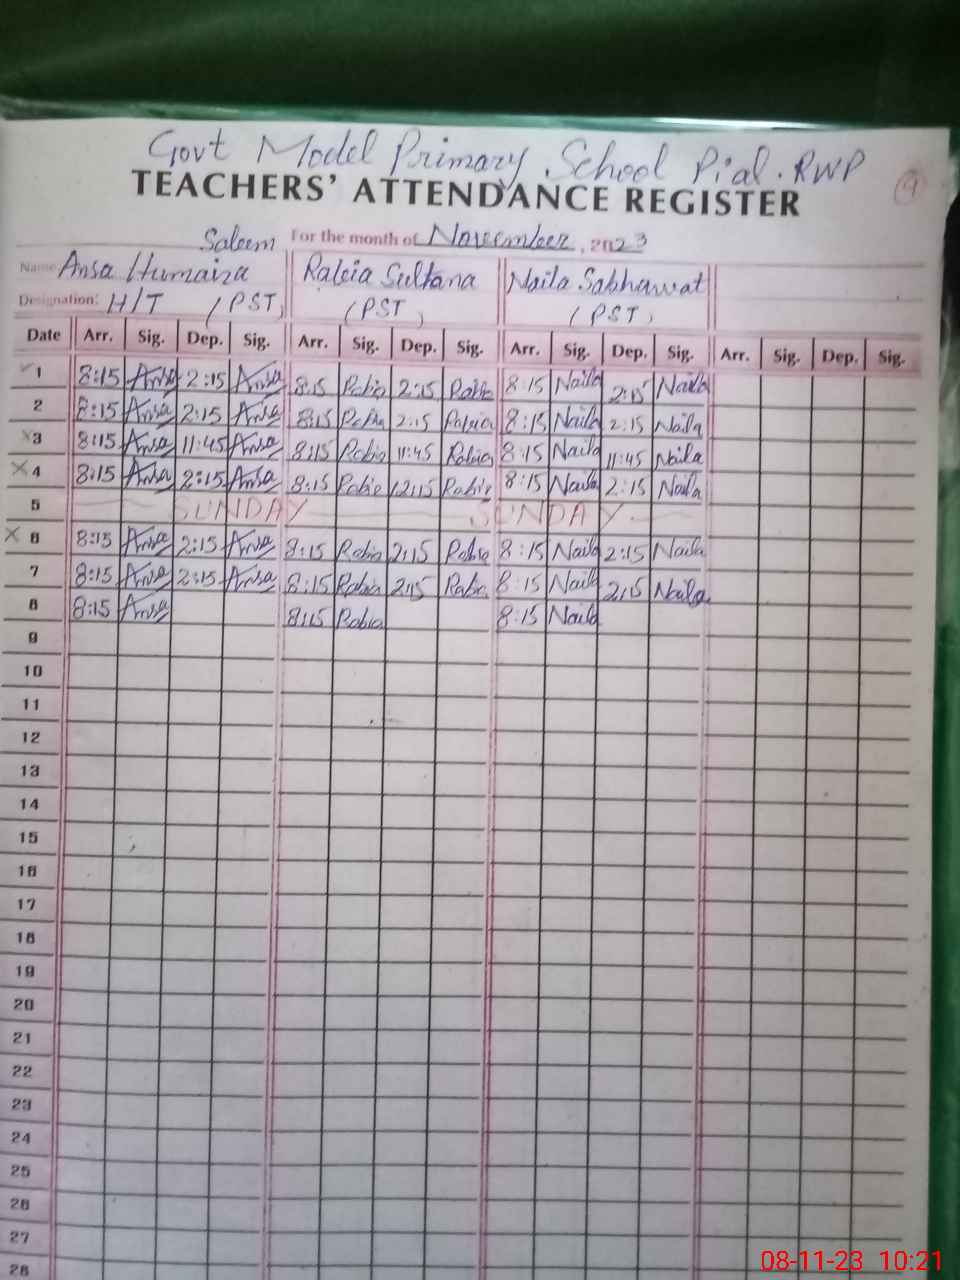 Govt Model Primary School Pial. RWP
TEACHERS' ATTENDANCE REGISTER
9
For the month of November, 2023
Saleem
Name Ansa Humaira Rabia Sultana Naila Sabhawat
Designation: H/T (PST) (PST) (PST)
Date Arr. Sig. Dep. Sig. Arr. Sig. Dep. Sig. Arr. Sig. Dep. Sig. Arr. Sig. Dep. Sig.
1 8:15 Ansa 2:15 Ansa 8:15 Rabia 2:15 Rabia 8:15 Naila 2:15 Naila
2 8:15 Ansa 2:15 Ansa 8:15 Rabia 2:15 Rabia 8:15 Naila 2:15 Naila
x3 8:15 Ansa 11:45 Ansa 8:15 Rabia 11:45 Rabia 8:15 Naila 11:45 Naila
x4 8:15 Ansa 2:15 Ansa 8:15 Rabia 12:15 Rabia 8:15 Naila 2:15 Naila
5 SUNDAY SUNDAY
x6 8:15 Ansa 2:15 Ansa 8:15 Rabia 2:15 Rabia 8:15 Naila 2:15 Naila
7 8:15 Ansa 2:15 Ansa 8:15 Rabia 2:15 Rabia 8:15 Naila 2:15 Naila
8 8:15 Ansa 8:15 Rabia 8:15 Naila
9
10
11
12
13
14
15
16
17
18
19
20
21
22
23
24
25
26
27
28
08-11-23 10:21